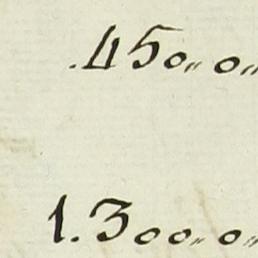 .450,, 0,,
1.300,, 0,,